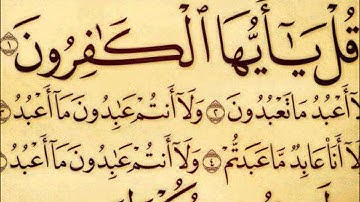 قُلْ يَـٰٓأَيُّهَا ٱلْكَـٰفِرُونَ ١
أَعْبُدُ مَا تَعْبُدُونَ ٢ وَلَآ أَنتُمْ عَـٰبِدُونَ مَآ أَعْبُدُ ٣
أَنَا۠ عَابِدٌ مَّا عَبَدتُّمْ ٤ وَلَآ أَنتُمْ عَـٰبِدُونَ مَآ أَعْبُدُ